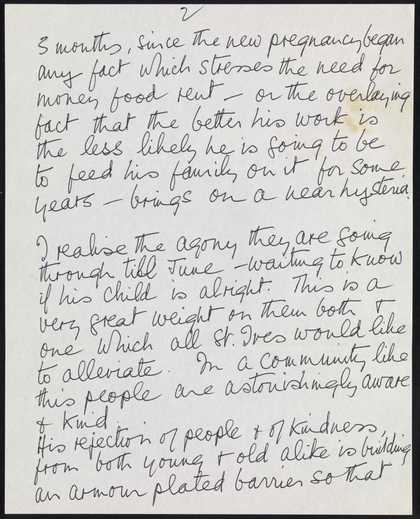 2
3 months, since the new pregnancy began
any fact which stresses the need for
money food rent – or the overlaying
fact that the better his work is
the less likely he is going to be
to feed his family on it for some
years – brings on a near hysteria.
I realise the agony they are going
through till June – waiting to know
if his child is alright. This is a
very great weight on them both &
one which all St. Ives would like
to alleviate. In a community like
this people are astonishingly aware
& kind.
His rejection of people & of kindness,
from both young & old alike is building
an armour plated barrier so that